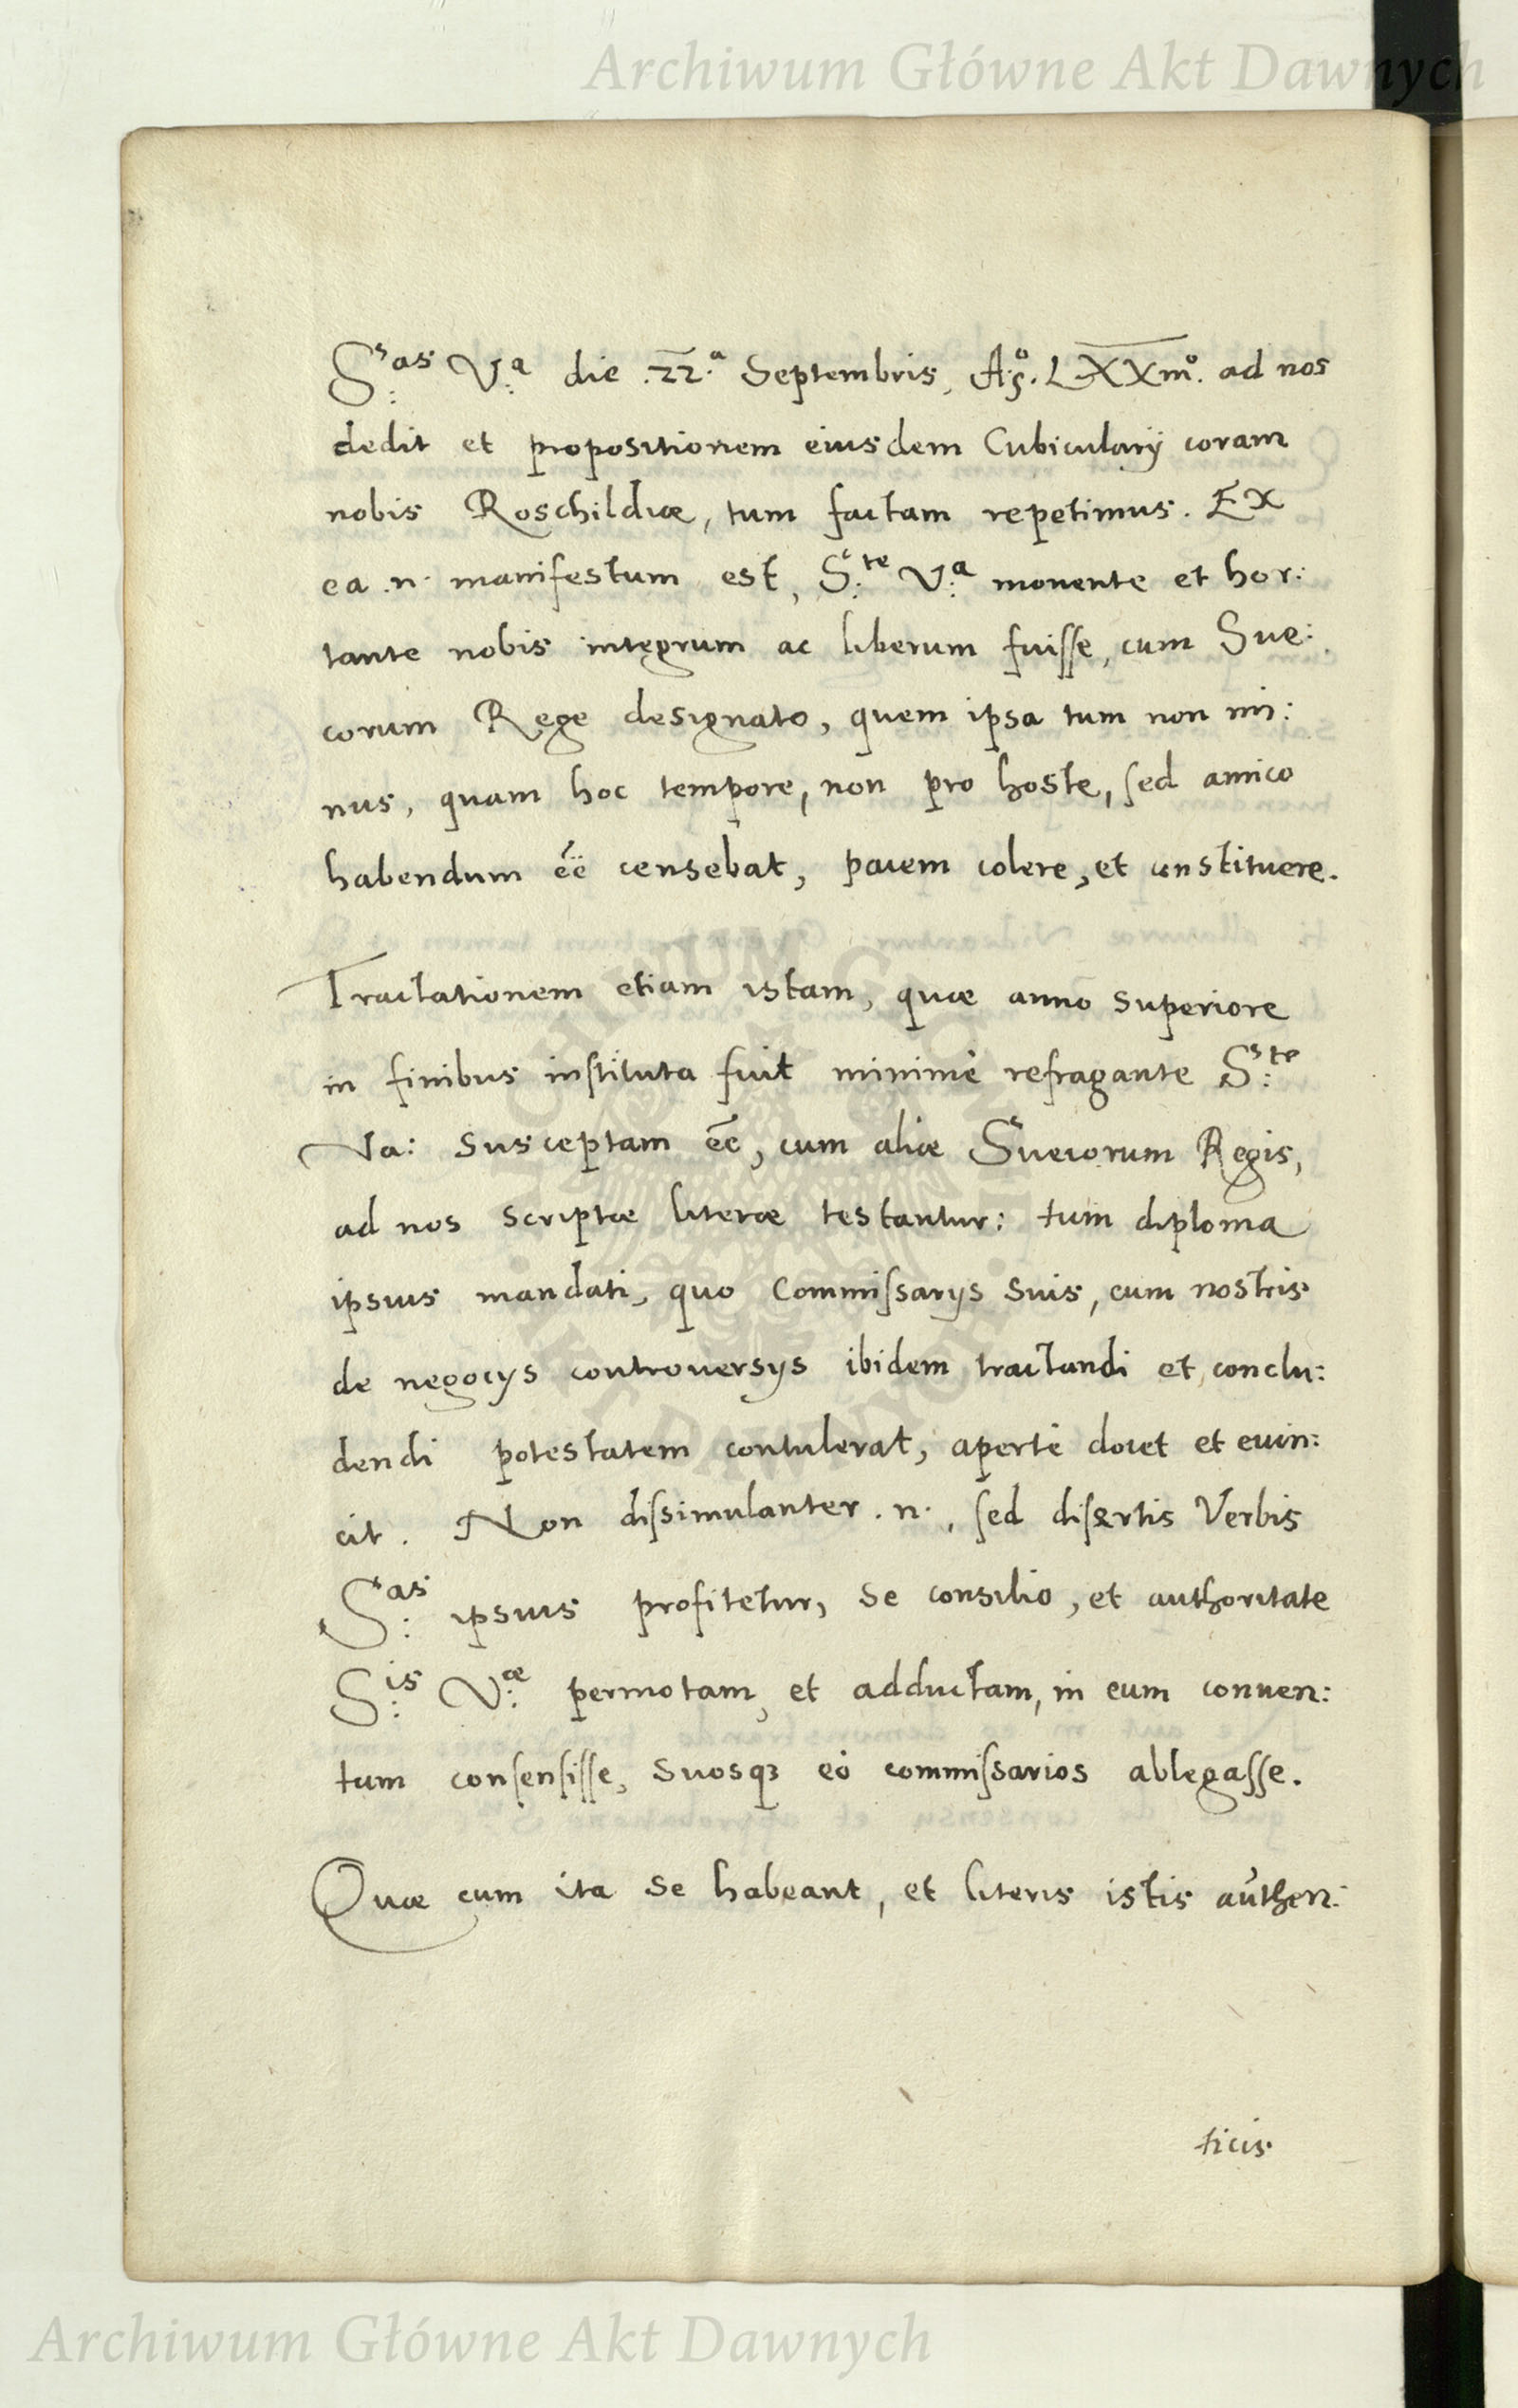 Archiwum Główne Akt Dawnych
S:as V:a die .22.a Septembris, Aº. LXXmº. ad nos
dedit et propositionem eiusdem Cubicularij coram
nobis Roschildiæ, tum factam repetimus. Ex
ea .n. manifestum est, S:te V:a monente et hor:
tante nobis integrum ac liberum fuiſſe, cum Sue:
corum Rege designato, quem ipsa tum non mi:
nus, quam hoc tempore, non pro hoste, ſed amico
habendum eē censebat, pacem colere, et constituere.
Tractationem etiam istam, quæ anno superiore
in finibus inſtituta fuit minimè refragante S:te
Va: susceptam eē, cum aliæ Suecorum Regis,
ad nos scriptæ literæ testantur: tum diploma
ipsius mandati, quo Commiſsarys suis, cum nostris
de negocys controversys ibidem tractandi et conclu:
dendi potestatem contulerat, apertè docet et euin:
cit. Non diſsimulanter .n., ſed diſertis Verbis
S:as ipsius profitetur, se consilio, et authoritate
S:is V:æ permotam, et adductam, in eum conuen:
tum conſenſiſſe, suosqꝫ eò commiſsarios ablegaſſe.
Quæ cum ita se habeant, et literis istis authen:
ticis
Archiwum Główne Akt Dawnych